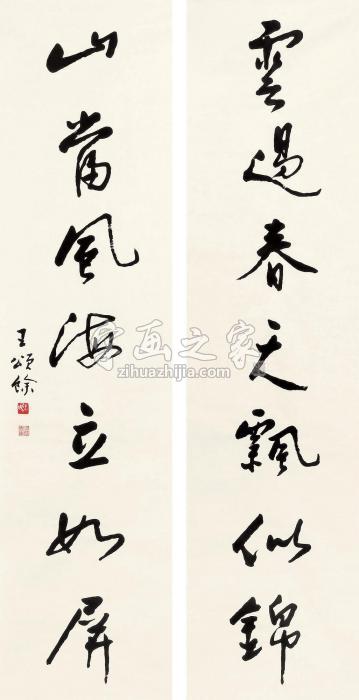 雲過春天飄似錦
山當風海立如屏
王頌餘
字画之家
zihuazhijia.com